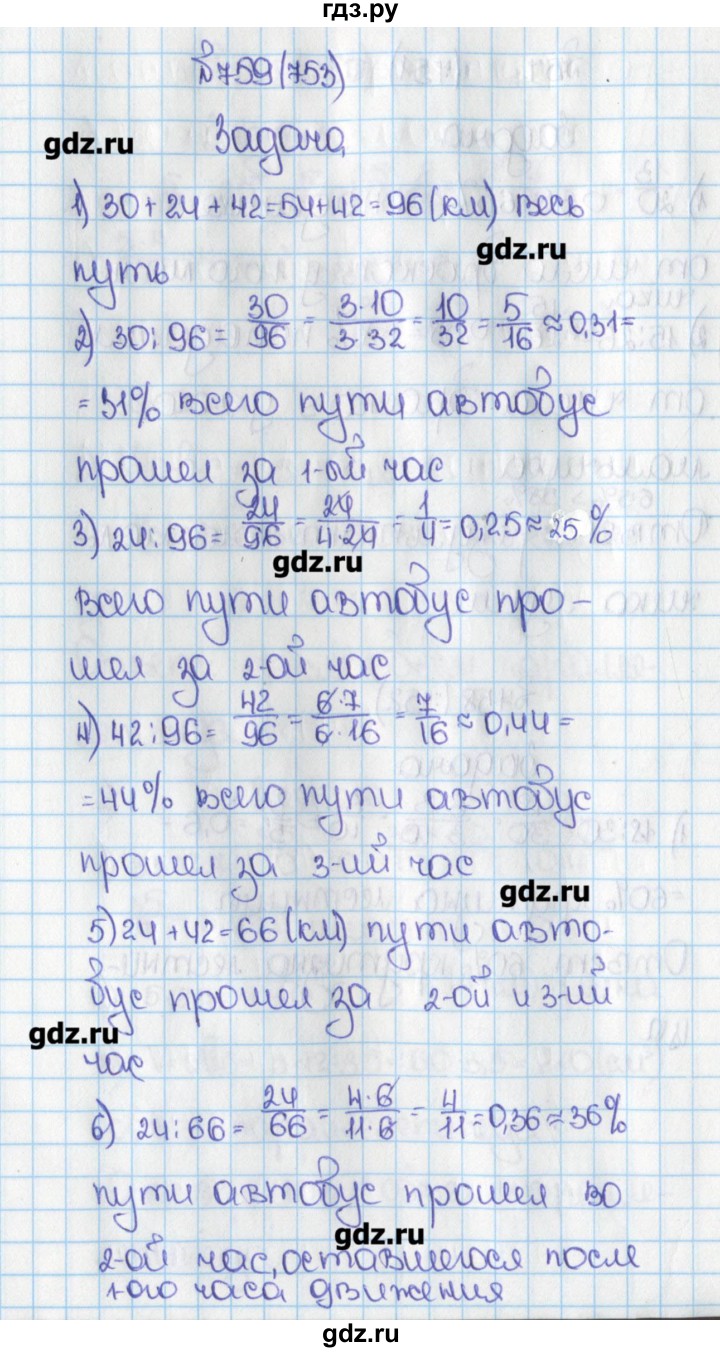 гдз.ру
№759(753)
gdz.ru
Задача
1) 30+24+42=54+42=96(км) весь
gdz.ru
путь
2) 30:96= 30/96 = 3·10/3·32 = 10/32 = 5/16 ≈ 0,31=
=31% всего пути автобус
прошел за 1-ый час
3) 24:96= 24/96 = 24/4·24 = 1/4 = 0,25 ≈ 25%
gdz.ru
всего пути автобус про-
шел за 2-ой час
4) 42:96= 42/96 = 6·7/6·16 = 7/16 ≈ 0,44=
=44% всего пути автобус
прошел за 3-ий час
gdz.ru
5) 24+42=66(км) пути авто-
бус прошел за 2-ой и 3-ий
gdz.ru
час
6) 24:66= 24/66 = 4·6/11·6 = 4/11 = 0,36 ≈ 36%
пути автобус прошел во
gdz.ru
2-ой час, оставшегося после
1-ого часа движения
gdz.ru